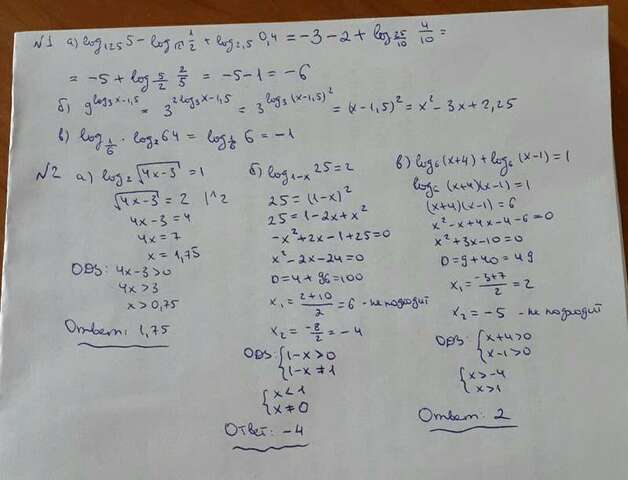 №1 а) log₁₂₅ 5 - log√2 1/2 + log₂,₅ 0,4 = -3 - 2 + log 25/10 4/10 =
= -5 + log 5/2 2/5 = -5 - 1 = -6
б) 9^(log₃ x-1,5) = 3^(2log₃ x-1,5) = 3^(log₃ (x-1,5)²) = (x-1,5)² = x² - 3x + 2,25
в) log 1/6 · log₂ 64 = log 1/6 6 = -1
№2 а) log₂ √(4x-3) = 1
√(4x-3) = 2 |^2
4x-3 = 4
4x = 7
x = 1,75
ОДЗ: 4x-3>0
4x>3
x>0,75
Ответ: 1,75
б) log₁₋ₓ 25 = 2
25 = (1-x)²
25 = 1-2x+x²
-x²+2x-1+25=0
x²-2x-24=0
D=4+96=100
x₁ = (2+10)/2 = 6 - не подходит
x₂ = -8/2 = -4
ОДЗ: { 1-x>0
1-x≠1
{ x<1
x≠0
Ответ: -4
в) log₆(x+4) + log₆(x-1) = 1
log₆ (x+4)(x-1) = 1
(x+4)(x-1) = 6
x²-x+4x-4-6=0
x²+3x-10=0
D=9+40=49
x₁ = (-3+7)/2 = 2
x₂ = -5 - не подходит
ОДЗ: { x+4>0
x-1>0
{ x>-4
x>1
Ответ: 2